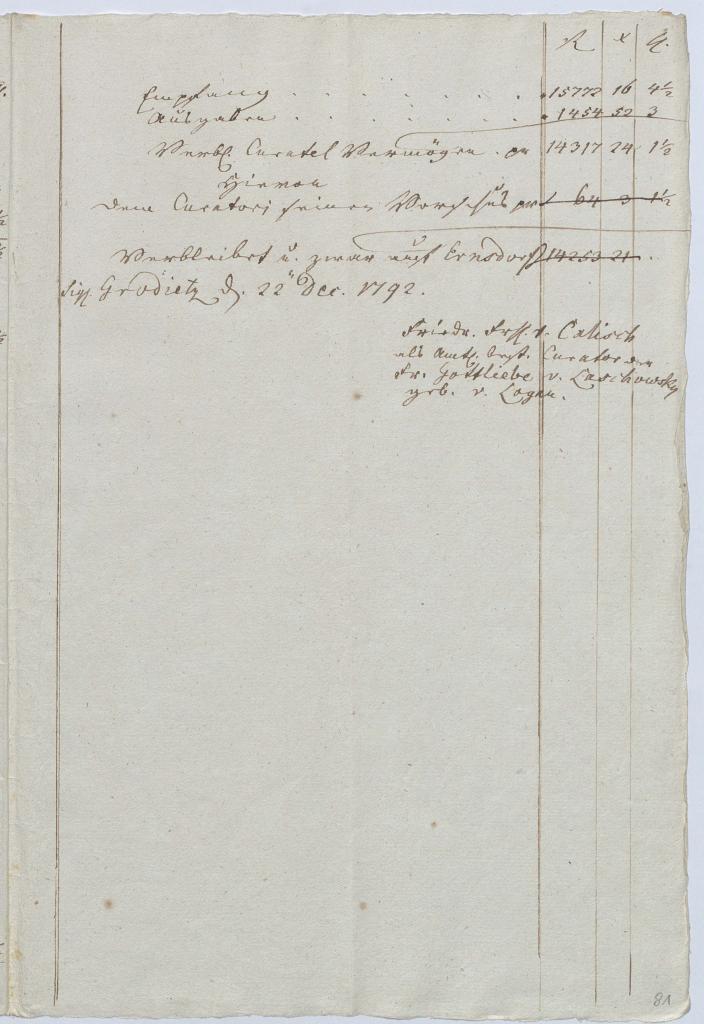 R x q.
Empfang . . . . . . . 15772 16 4½
Ausgaben . . . . . . . 1454 52 3
Verbl. Curatel Vermögen . pr 14317 24 1½
Hievon
dem Curatori seinen Vorschus pr 64 3 1½
Verbleibet u. zwar auf Ernsdorf 14253 21 .
Sig. Grodietz d. 22" Dec. 1792.
Friedr. Frh. v. Calisch
als Amts. best. Curator der
Fr. Gottliebe v. Laschowsky
geb. v. Logau.
81